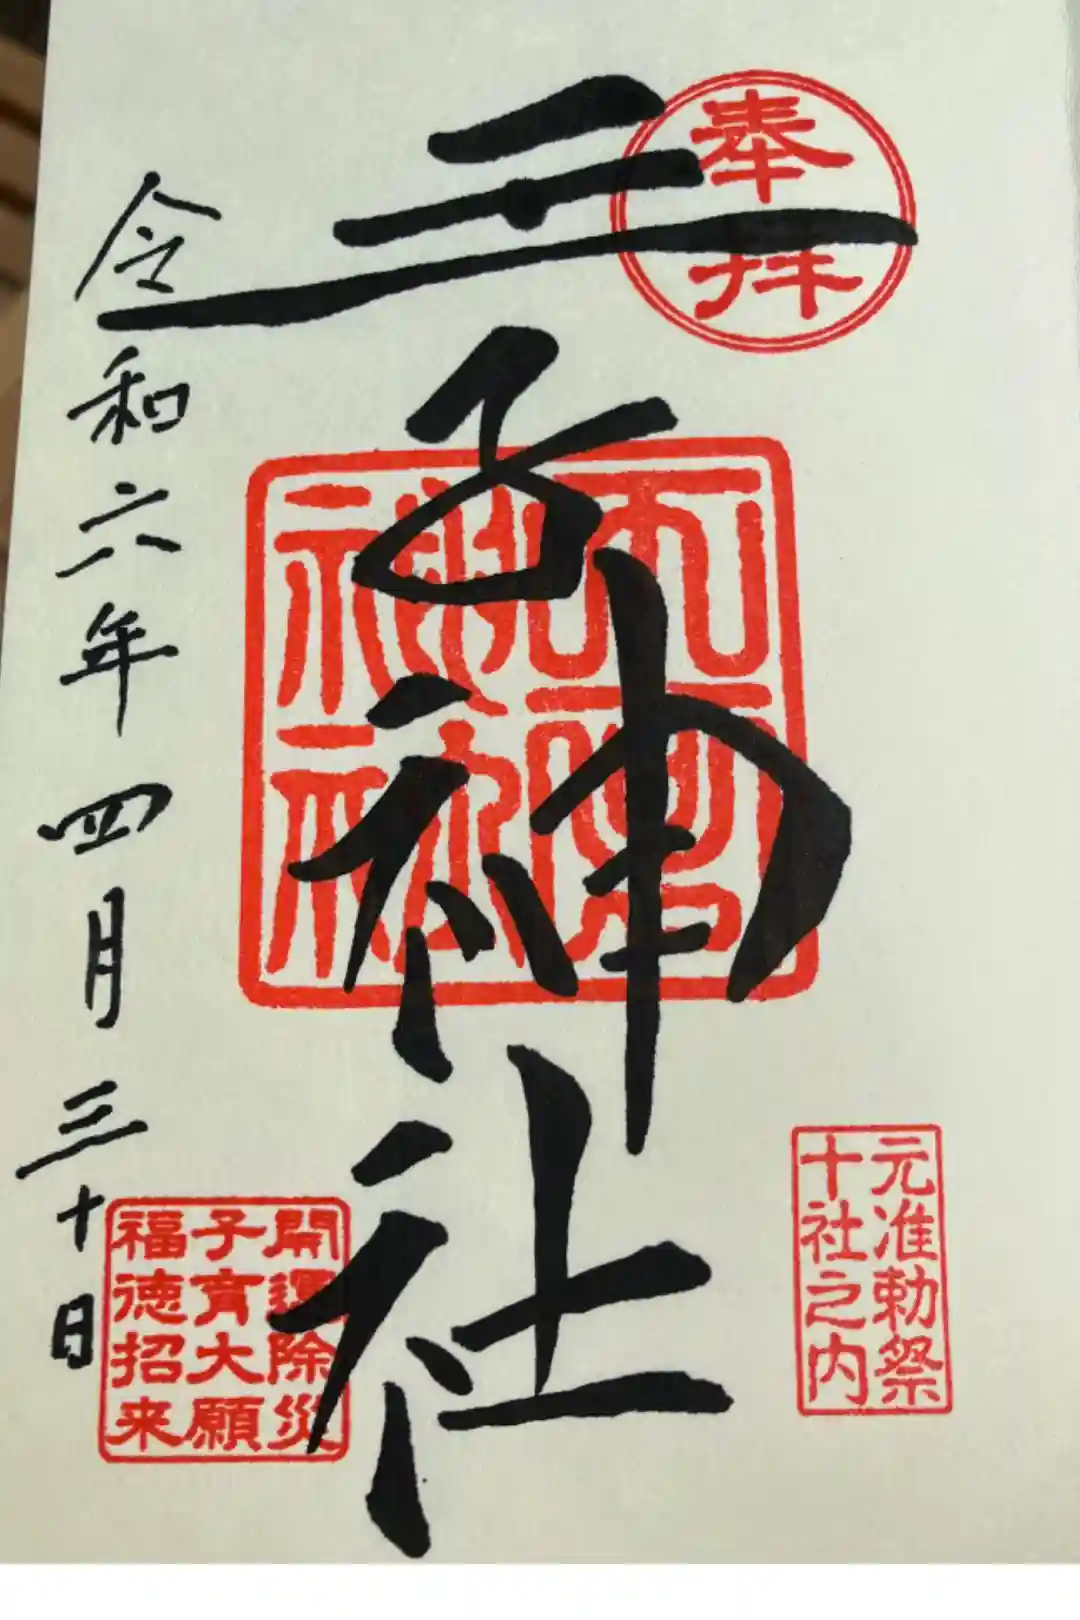 奉拝
元准勅祭
十社之内
王子神社
開運除災
子育大願
福徳招来
令和六年四月三十日